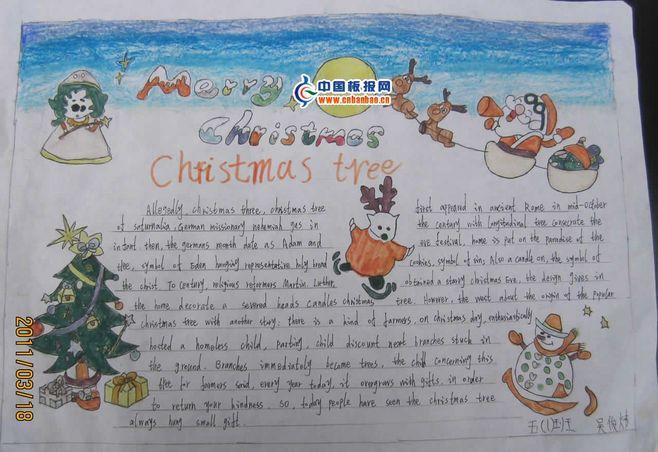 Merry
中国板报网
www.cnbanbao.cn
Christmas
Christmas tree
Allegedly, christmas three, christmas tree
of saturnalia, German missionary nehemiah gas in
infant then, the germans month date as Adam and
tree, symbol of Eden hanging representative holy bread
the christ. To century, religious reformers Martin Luther,
the home decorate a severed heads candles christmas
first appeared in ancient Rome in mid-October
the century with longitudinal tree consecrate the
eve festival, home is put on the paradise of the
cookies, symbol of sin; Also a candle on, the symbol of
obtained a starry christmas Eve, the design gives in
tree. However, the west about the origin of the popular
christmas tree with another story: there is a kind of farmers, on christmas day, enthusiastically
hosted a homeless child, parting, child discount next branches stuck in
the ground. Branches immediately became trees, the child concerning this
tree for farmers said, every year today, it overgrows with gifts, in order
to return your kindness. So, today people have seen the christmas tree
always hung small gift.
五(1)班
2011/03/18